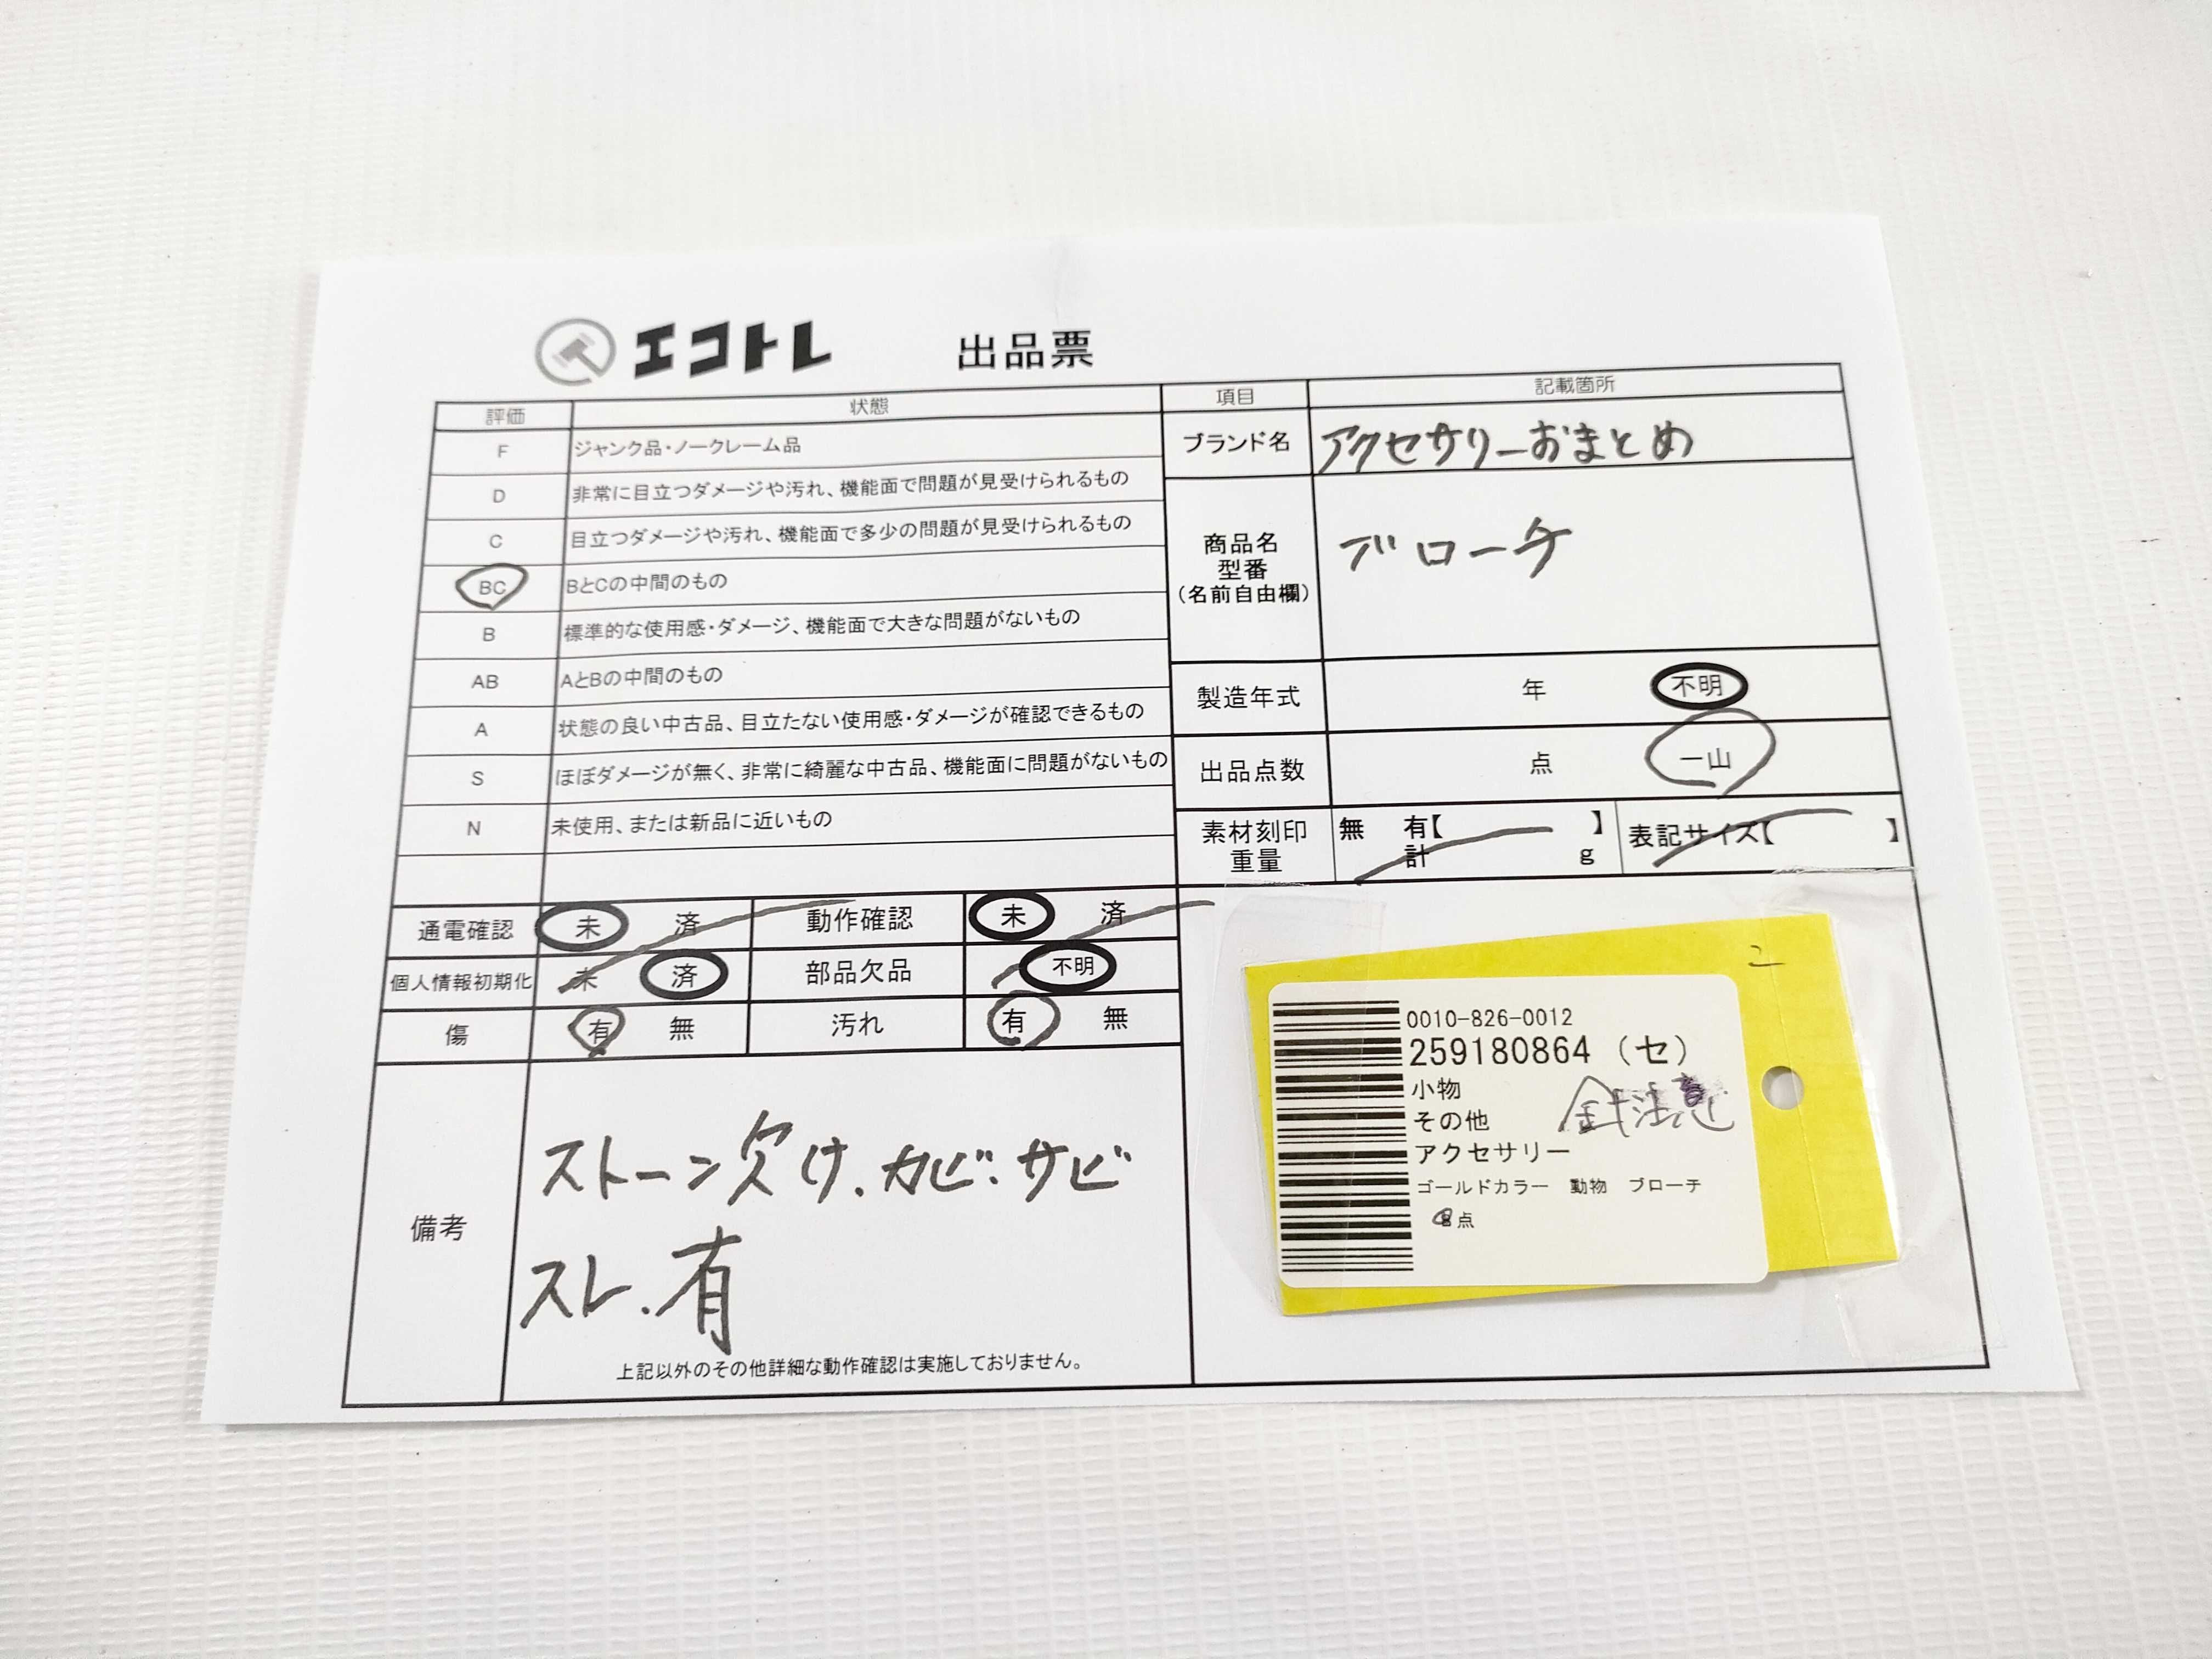 エコトレ 出品票
評価 状態
F ジャンク品・ノークレーム品
D 非常に目立つダメージや汚れ、機能面で問題が見受けられるもの
C 目立つダメージや汚れ、機能面で多少の問題が見受けられるもの
BC BとCの中間のもの
B 標準的な使用感・ダメージ、機能面で大きな問題がないもの
AB AとBの中間のもの
A 状態の良い中古品、目立たない使用感・ダメージが確認できるもの
S ほぼダメージが無く、非常に綺麗な中古品、機能面に問題がないもの
N 未使用、または新品に近いもの
項目 記載箇所
ブランド名 アクセサリーおまとめ
商品名
型番
(名前自由欄)
ブローチ
製造年式 年 不明
出品点数 点 一山
素材刻印 無 有【 】 表記サイズ【 】
重量 計 g
通電確認 未 済 動作確認 未 済
個人情報初期化 未 済 部品欠品 不明
傷 有 無 汚れ 有 無
備考
ストーン欠け.カビ.サビ
スレ.有
上記以外のその他詳細な動作確認は実施しておりません。
0010-826-0012
259180864 (セ)
小物
その他 針注意
アクセサリー
ゴールドカラー 動物 ブローチ
点